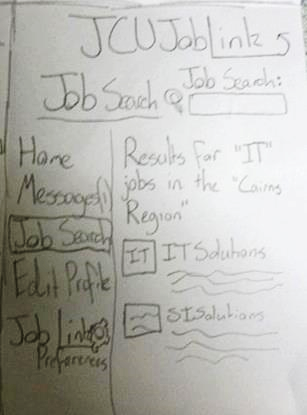 JCU JobLink 5
Job Search:
Job Search
Home
Messages(1)
Job Search
Edit Profile
Job Link
Preferences
Results for "IT"
jobs in the "Cairns
Region"
IT IT Solutions
SI Solutions